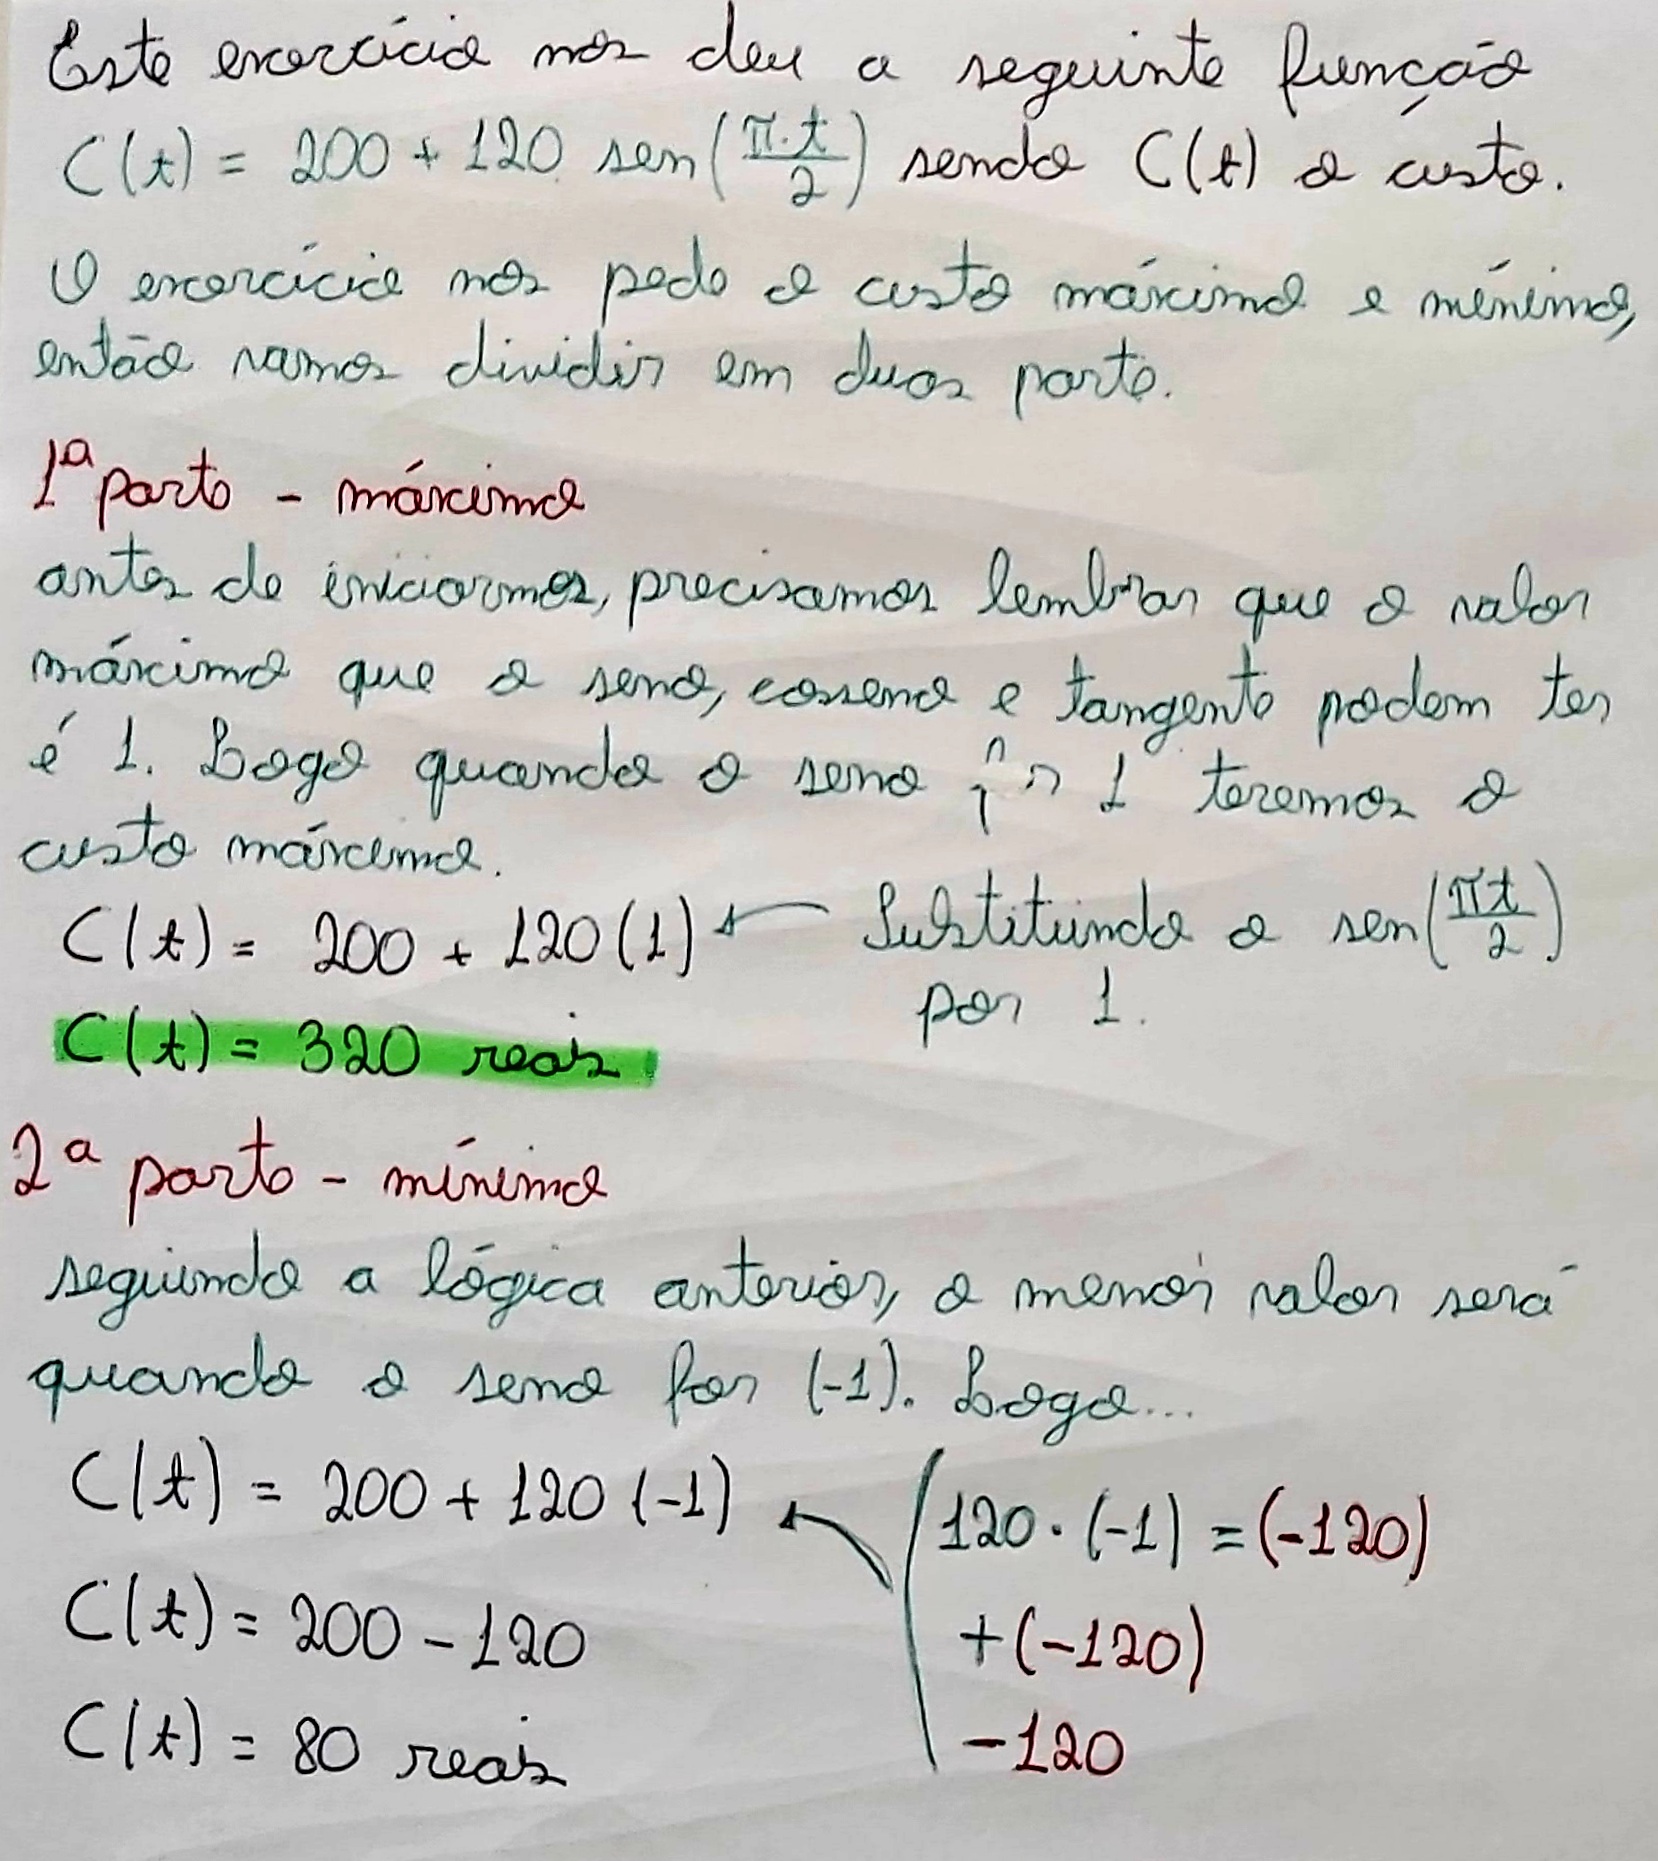 Este exercício nos deu a seguinte função
C(t) = 200 + 120 sen(π·t/2) sendo C(t) o custo.
O exercício nos pede o custo máximo e mínimo,
então vamos dividir em duas parte.
1ª parte - máximo
antes de iniciarmos, precisamos lembrar que o valor
máximo que o seno, cosseno e tangente podem ter
é 1. Logo quando o seno 1 teremos o
custo máximo.
C(t) = 200 + 120(1) ← Substituindo o sen(πt/2)
por 1.
C(t) = 320 reais
2ª parte - mínimo
seguindo a lógica anterior, o menor valor será
quando o seno for (-1). Logo...
C(t) = 200 + 120 (-1)
120 · (-1) = (-120)
C(t) = 200 - 120
+(-120)
C(t) = 80 reais
-120